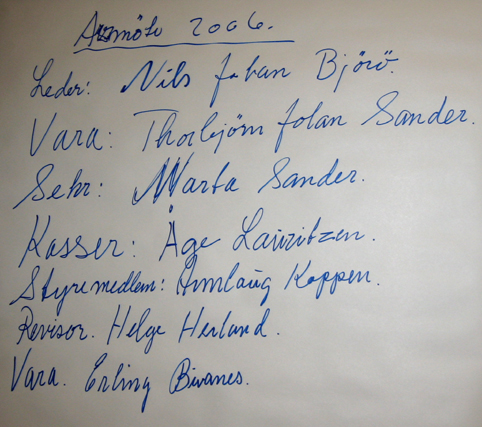 Årsmöte 2006.
Leder: Nils Johan Björö.
Vara: Thorbjörn Johan Sander.
Sekr: Marta Sander.
Kasser: Åge Lauritzen.
Styremedlem: Arnlaug Koppen.
Revisor. Helge Herland.
Vara. Erling Bivanes.